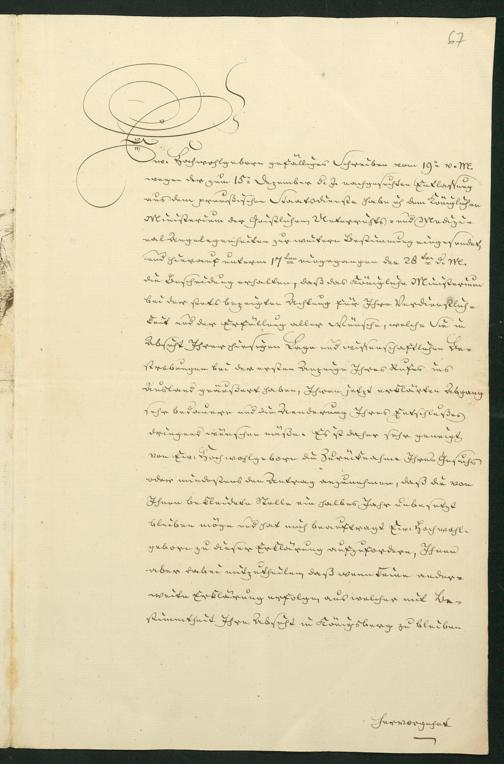 67
Ew. Hochwohlgeboren gefälliges Schreiben vom 19ⁿ v. M.
wegen der zum 15ⁿ Dezember d. J. nachgesuchten Entlassung
aus dem preußischen Staatsdienste habe ich dem Königlichen
Ministerium der Geistlichen, Unterrichts- und Medizi-
nal Angelegenheiten zur weitern Bestimmung eingesendet,
und hierauf unterm 17ten eingegangen den 28ten d. M.
die Bescheidung erhalten, daß das Königliche Ministerium
bei der stets bezeigten Achtung für Ihre Verdienstlich-
keit und der Erfüllung aller Wünsche, welche Sie in
Absicht Ihrer hiesigen Lage und wissenschaftlichen Be-
strebungen bei der ersten Anzeige Ihres Rufes ins
Ausland geäußert haben, Ihren jetzt erklärten Abgang
sehr bedauern und die Aenderung Ihres Entschlußes
dringend wünschen müße. Es ist daher sehr geneigt,
von Ew. Hochwohlgeboren die Zurücknahme Ihres Gesuchs
oder mindestens den Antrag anzunehmen, daß die von
Ihnen bekleidete Stelle ein halbes Jahr unbesetzt
bleiben möge und hat mich beauftragt Ew. Hochwohl-
geboren zu dieser Erklärung aufzufordern, Ihnen
aber dabei mitzutheilen, daß wenn keine ander-
weite Erklärung erfolge, aus welcher mit Be-
stimmtheit Ihre Absicht in Königsberg zu bleiben
hervorgehet